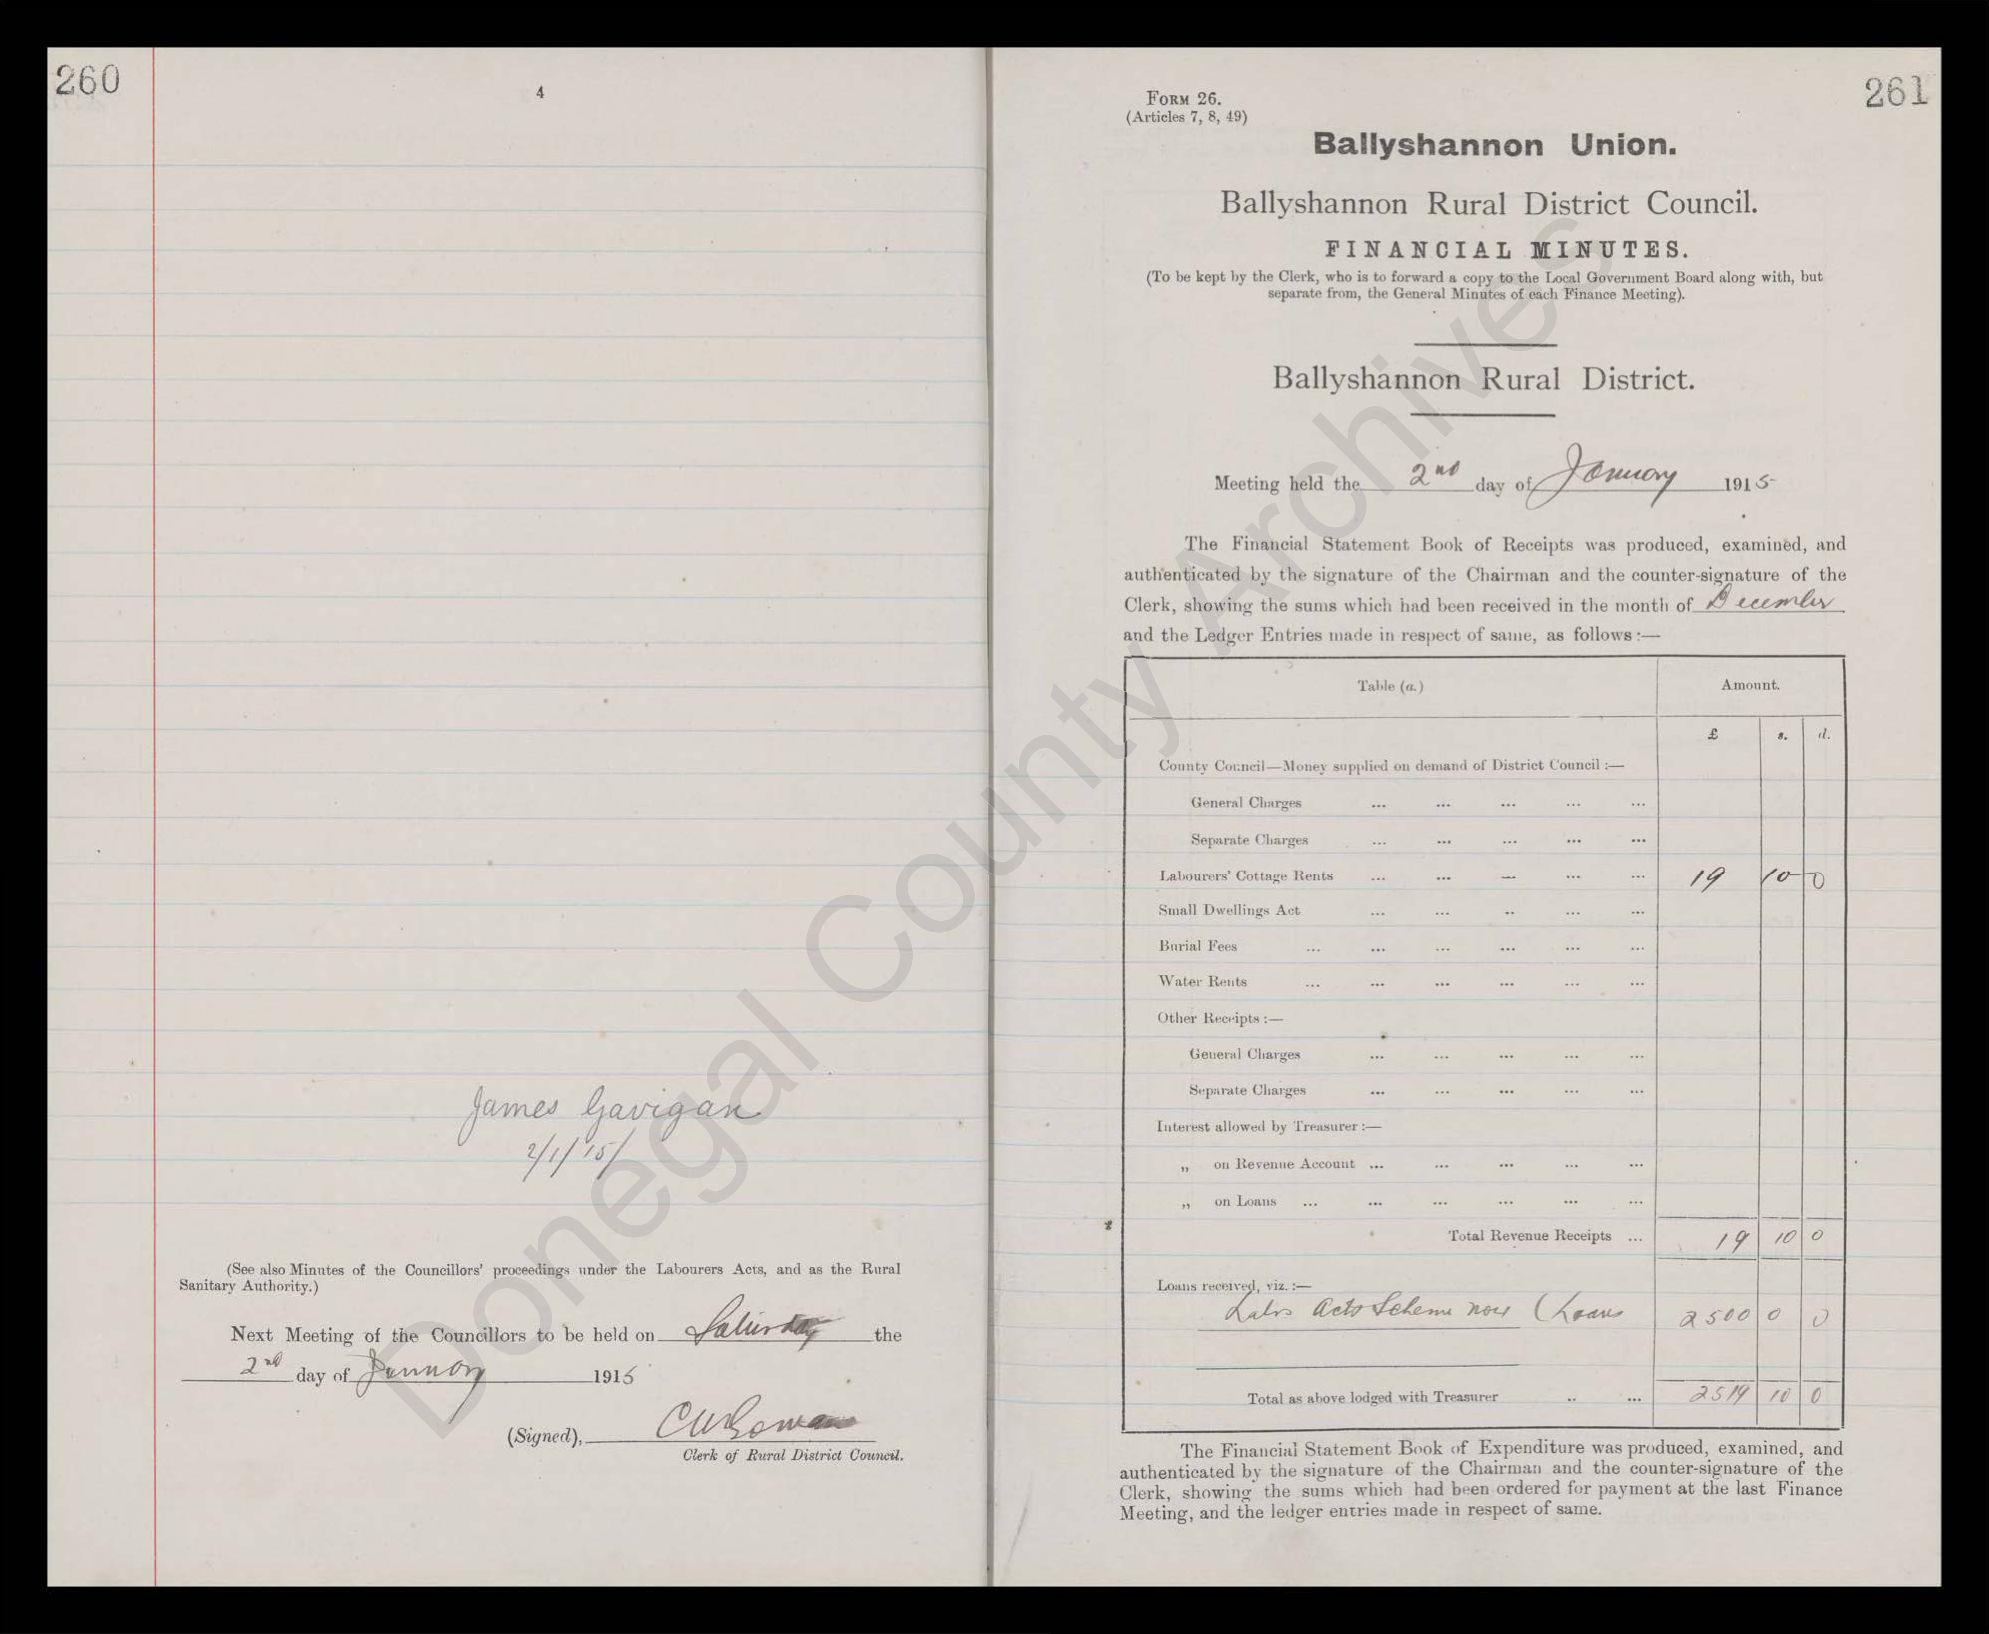 260
4
James Gavigan
2/1/15/
(See also Minutes of the Councillors' proceedings under the Labourers Acts, and as the Rural
Sanitary Authority.)
Next Meeting of the Councillors to be held on Saturday the
2nd day of January 1915
(Signed),
Clerk of Rural District Council.
261
Form 26.
(Articles 7, 8, 49)
Ballyshannon Union.
Ballyshannon Rural District Council.
FINANCIAL MINUTES.
(To be kept by the Clerk, who is to forward a copy to the Local Government Board along with, but
separate from, the General Minutes of each Finance Meeting).
Ballyshannon Rural District.
Meeting held the 2nd day of January 1915
The Financial Statement Book of Receipts was produced, examined, and
authenticated by the signature of the Chairman and the counter-signature of the
Clerk, showing the sums which had been received in the month of December
and the Ledger Entries made in respect of same, as follows :—
Table (a.) Amount.
£ s. d.
County Council—Money supplied on demand of District Council :—
General Charges ... ... ... ... ...
Separate Charges ... ... ... ... ...
Labourers' Cottage Rents ... ... ... ... ... 19 10 0
Small Dwellings Act ... ... .. ... ...
Burial Fees ... ... ... ... ... ...
Water Rents ... ... ... ... ... ...
Other Receipts :—
General Charges ... ... ... ... ...
Separate Charges ... ... ... ... ...
Interest allowed by Treasurer :—
„ on Revenue Account ... ... ... ... ...
„ on Loans ... ... ... ... ... ...
Total Revenue Receipts ... 19 10 0
Loans received, viz. :—
Labrs Acts Scheme (Loans 2500 0 0
Total as above lodged with Treasurer .. ... 2519 10 0
The Financial Statement Book of Expenditure was produced, examined, and
authenticated by the signature of the Chairman and the counter-signature of the
Clerk, showing the sums which had been ordered for payment at the last Finance
Meeting, and the ledger entries made in respect of same.
Donegal County Archives